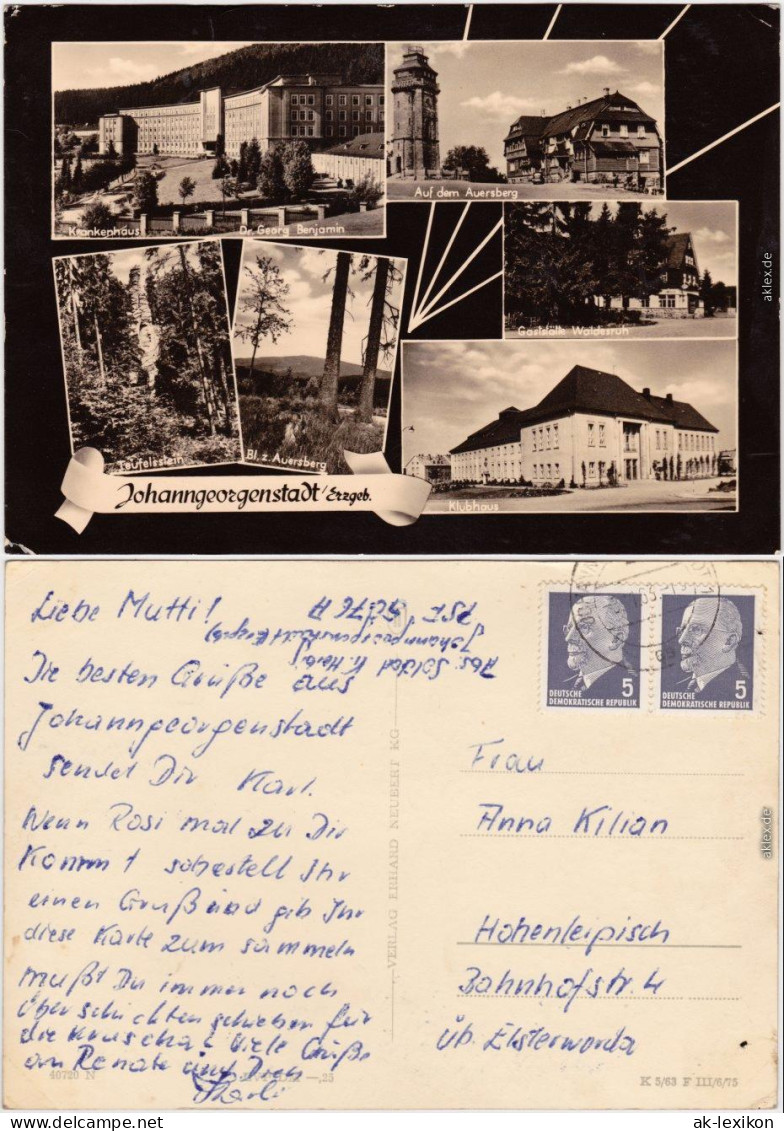 Krankenhaus Dr. Georg Benjamin
Auf dem Auersberg
Gaststätte Waldesruh
Teufelsstein
Bl. z. Auersberg
Klubhaus
Johanngeorgenstadt/Erzgeb.
aklex.de
Liebe Mutti!
Die besten Grüße aus
Johanngeorgenstadt
sendet Dir Karl.
Wenn Rosi mal zu Dir
kommt so bestell Ihr
einen Gruß und gib Ihr
diese Karte zum sammeln
mußt Du immer noch
Überschichten schieben für
die Viele Grüße
an Renate und Dich
Abs. Soldat K.
Johanngeorgenstadt (Erzgeb)
PSF
DEUTSCHE
DEMOKRATISCHE REPUBLIK
5
DEUTSCHE
DEMOKRATISCHE REPUBLIK
5
Frau
Anna Kilian
Hohenleipisch
Bahnhofstr. 4
üb. Elsterwerda
VERLAG ERHARD NEUBERT KG
46720 N
—,25
K 5/63 F III/6/75
aklex.de
www.ansichtskarten-lexikon.de
ak-lexikon